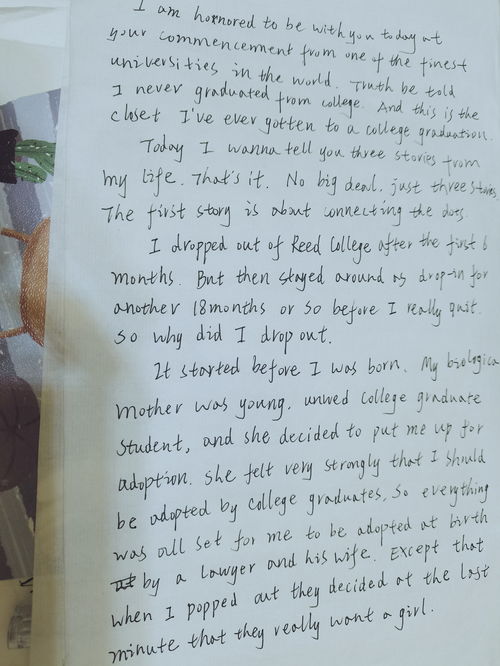 I am honored to be with you today at
your commencement from one of the finest
universities in the world. Truth be told
I never graduated from college. And this is the
closet I've ever gotten to a college graduation.
Today I wanna tell you three stories from
my life. That's it. No big deal. just three stories
The first story is about connecting the dots.
I dropped out of Reed College after the first 6
months. But then stayed around as drop-in for
another 18 months or so before I really quit.
So why did I drop out.
It started before I was born. My biologica
mother was young, unwed College graduate
student, and she decided to put me up for
adoption. She felt very strongly that I should
be adopted by College graduates, So everything
was all set for me to be adopted at birth
by a lawyer and his wife. Except that
when I popped out they decided at the last
minute that they really want a girl.